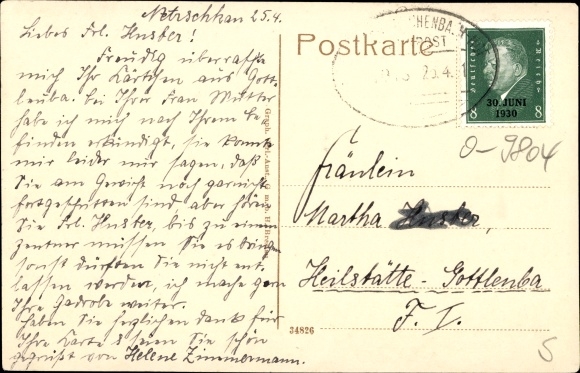 Netzschkau 25.4.
Liebes Frl. Huster!
Freudig überraschte
mich Ihr Kärtchen aus Gott-
leuba. Bei Ihrer Frau Mutter
habe ich mich nach Ihrem Be-
finden erkundigt, sie konnte
mir leider nur sagen, daß
Sie am Gewicht noch garnicht
fortgeschritten sind aber hören
Sie Frl. Huster, bis zu einem
Zentner müssen Sie es bringen
sonst dürften Sie nicht ent-
lassen werden, ich mache gern
Ihre Gadrobe weiter.
Haben Sie herzlichen Dank für
Ihre Karte & seien Sie schön
gegrüßt von Helene Zimmermann.
Postkarte
CHENBA
POST
25.4.
Deutsches Reich
30. JUNI
1930
8 8
0-9804
Fräulein
Martha Huster,
Heilstätte-Gottleuba
F. I.
34826
5